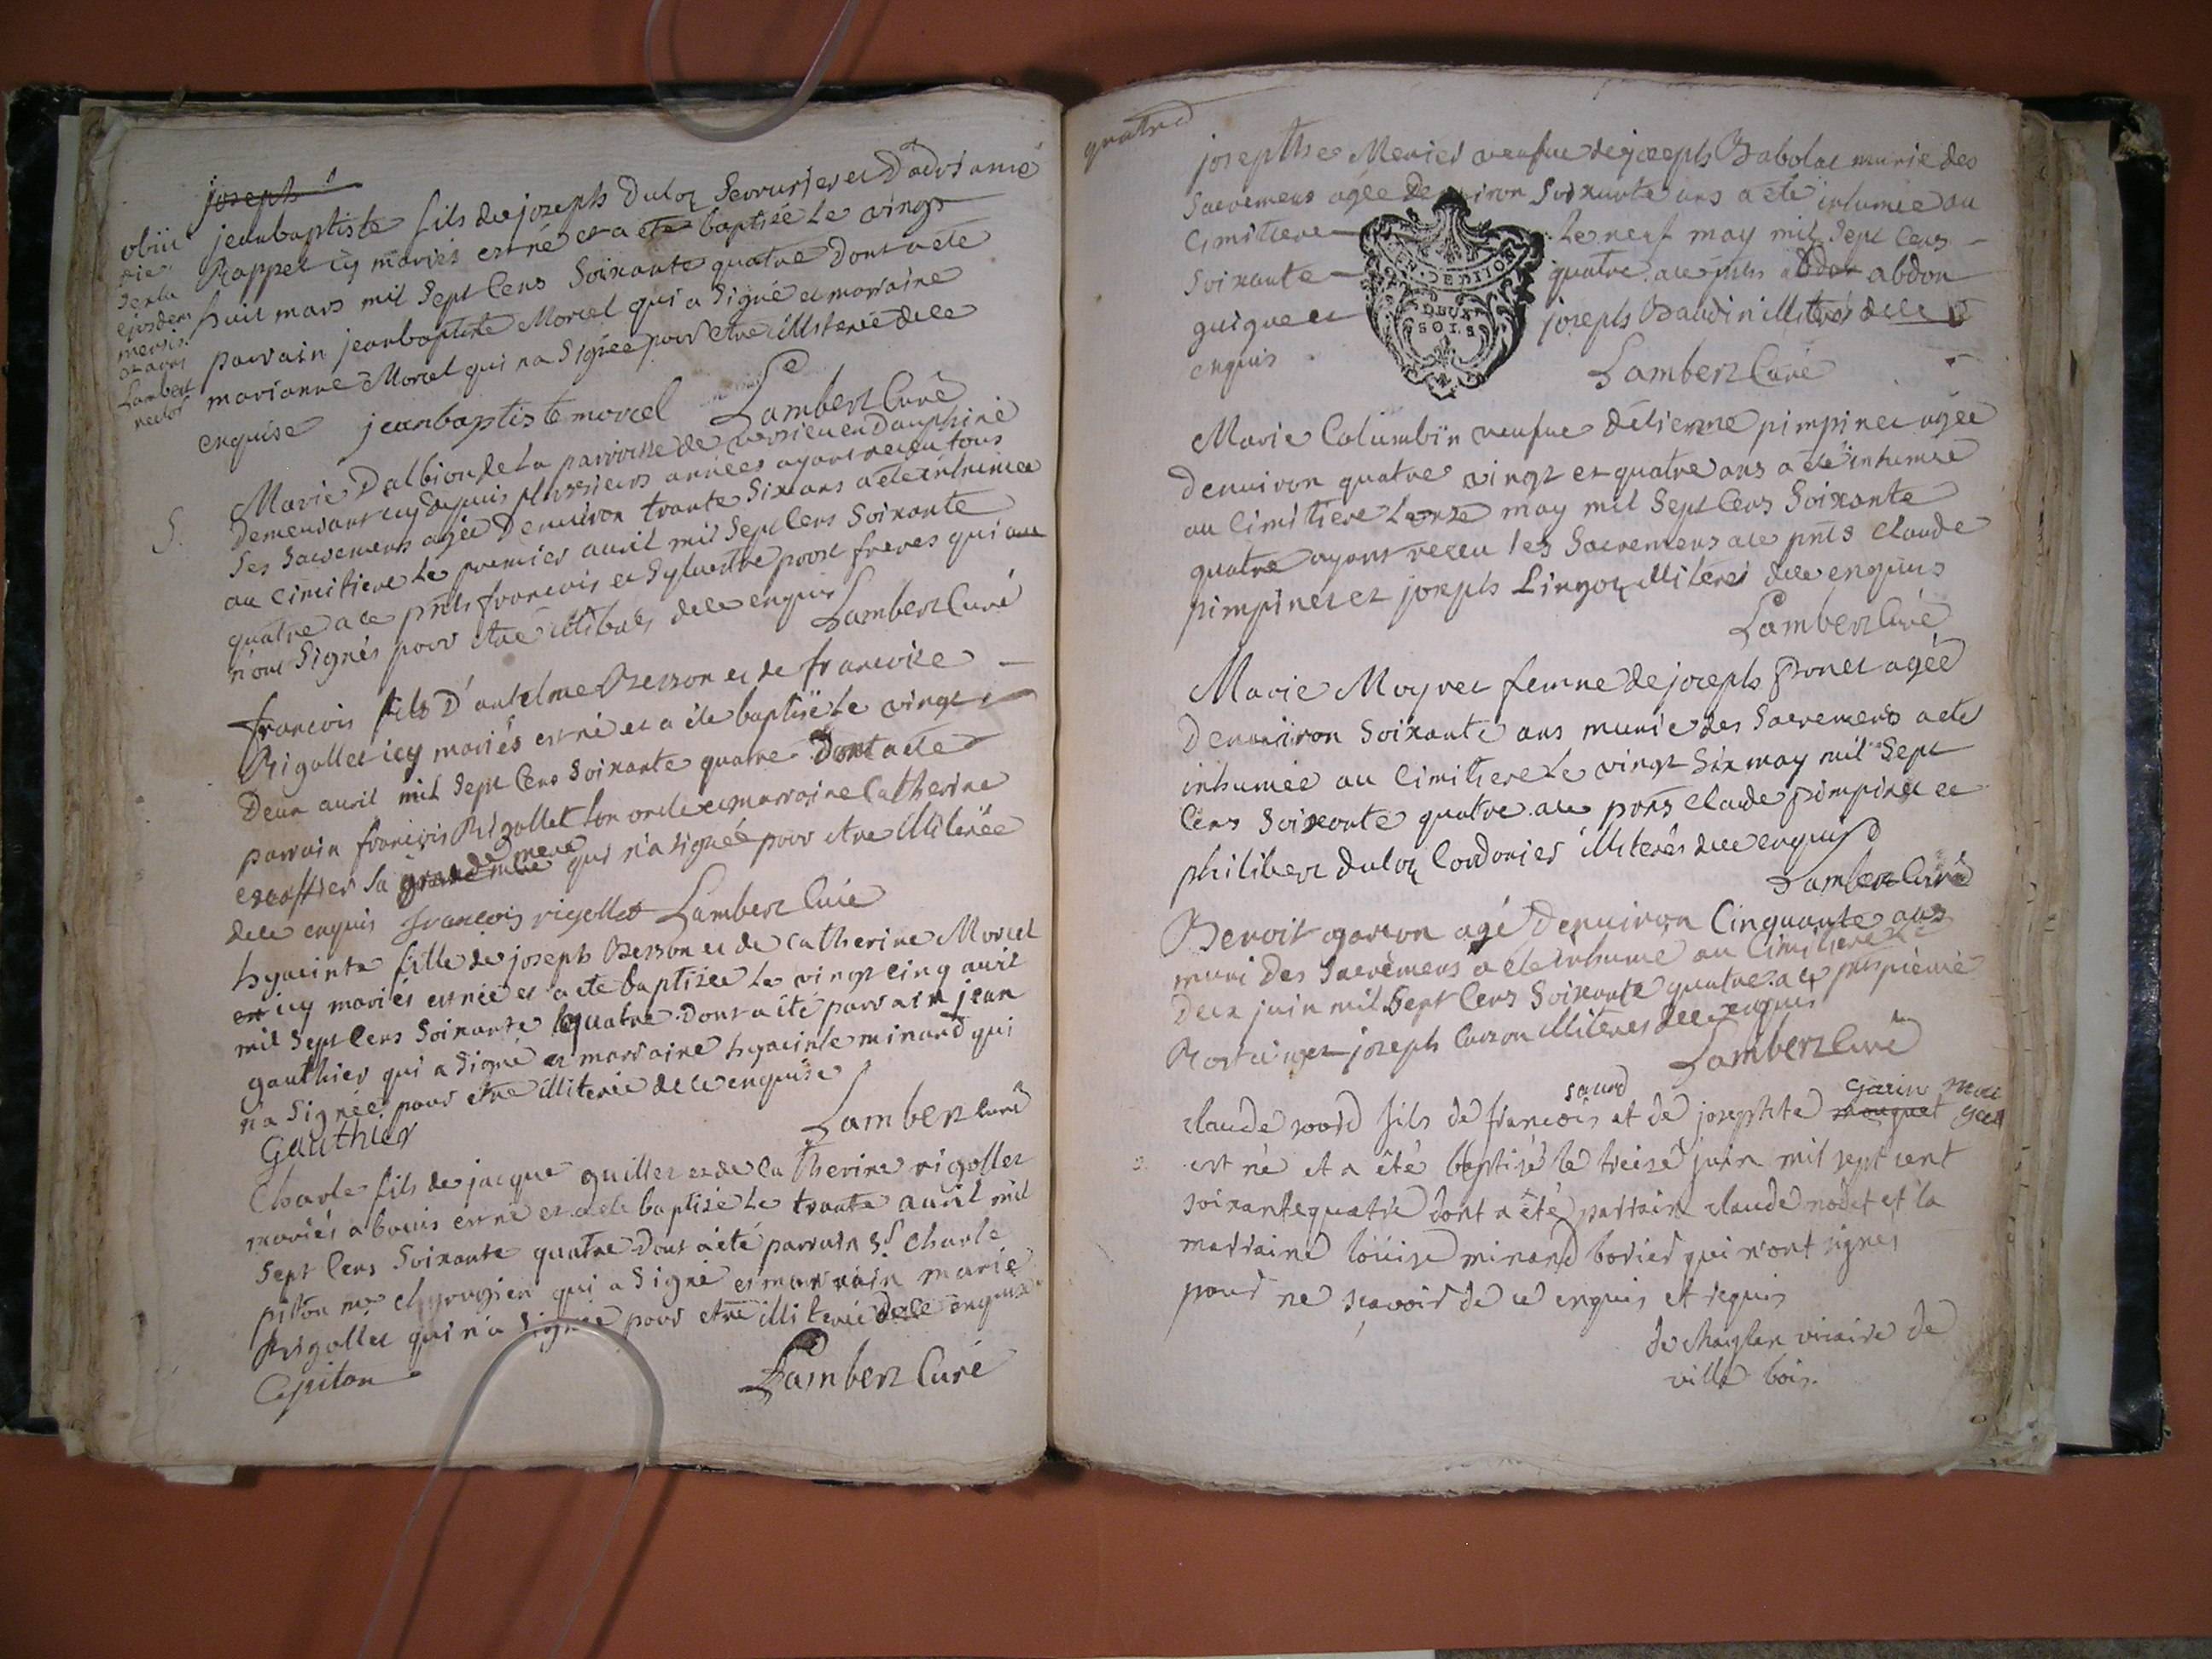 joseph
jeanbaptiste fils de joseph Duloz Serrurier et D'adrianne
Rappet icy mariés est né et a ete baptisé Le vingt
huit mars mil Sept Cens Soixante quatre Dont a ete
parrain jeanbaptiste Morcel qui a Signé et marraine
marianne Morcel qui n'a Signée pour etre illiterée de ce
enquise jeanbaptiste morcel Lambert Curé
obiit
die
sexta
ejusdem
mensis
Lambert
rector
Marie Dalbion de La parroisse de en Dauphiné
Demeurant icy depuis plusieurs années ayant receu tous
Ses Sacremens agée Denviron trante Six ans a ete inhumée
au Cimitiere Le premier auril mil Sept Cens Soixante
quatre a ce pnts francois et Sylvestre frères qui
n'ont Signés pour etre illiterés de ce enquis
Lambert Curé
S.
francois fils D'antelme Besson et de francoise
Rigollet icy mariés est né et a ete baptisé Le vingt
Deux auril mil Sept Cens Soixante quatre Dont a ete
parrain francois Rigollet Son oncle et marraine Catherine
escoffier Sa grand mere qui n'a signée pour etre illiterée
de ce enquis françois rigollet Lambert Curé
hyacinte fille de joseph Besson et de Catherine Morcel
et icy mariés est née et a ete baptisée Le vingt cinq auril
mil Sept Cens Soixante quatre Dont a été parrain jean
gauthier qui a Signé et marraine hyacinte minand qui
n'a Signée pour etre illiterée de ce enquise
Gauthier Lambert Curé
Charle fils de jacque guillet et de Catherine rigollet
mariés est né et a ete baptisé Le trante auril mil
Sept Cens Soixante quatre Dont a été parrain Sr Charle
piton me chyrurgien qui a Signé et marrain marie
Rigollet qui n'a Signée pour etre illiterée de ce enquise
Cpiton Lambert Curé
quatre
josepthe Meriet veufue de joseph Babolat munie des
Sacremens agée Denviron Soixante ans a ete inhumée au
Cimitiere Le neuf may mil Sept Cens
Soixante quatre a ce pnts abdon
guigue et joseph Baudin illiterés de ce
enquis Lambert Curé
DEUX
SOLS
Marie Columbin veufue Détienne pimpinet agée
Denviron quatre vingt et quatre ans a ete inhumée
au Cimitiere Le onze may mil Sept Cens Soixante
quatre ayant receu les Sacremens a ce pnts Claude
pimpinet et joseph Lingoz illiterés de ce enquis
Lambert Curé
Marie Moyret femme de joseph Ponet agée
Denviron Soixante ans munie des Sacremens a ete
inhumée au Cimitiere Le vingt Six may mil Sept
Cens Soixante quatre a ce pnts Claude pimpinet et
philibert Duloz Cordonier illiterés de ce enquis
Lambert Curé
Benoit garcon agé Denviron Cinquante ans
muni des Sacremens a ete inhumé au Cimitiere Le
Deux juin mil Sept Cens Soixante quatre a ce pnts pierre
Rostaing et joseph illiterés de ce enquis
Lambert Curé
claude sourd fils de francois sourd et de josephte mouguet garin
est né et a été baptisé le treize juin mil sept cent
soixante quatre dont a été parrain claude nodet et la
marraine loüise minand borier qui n'ont signés
pour ne scavoir de ce enquis et requis
vicaire de
ville bois.